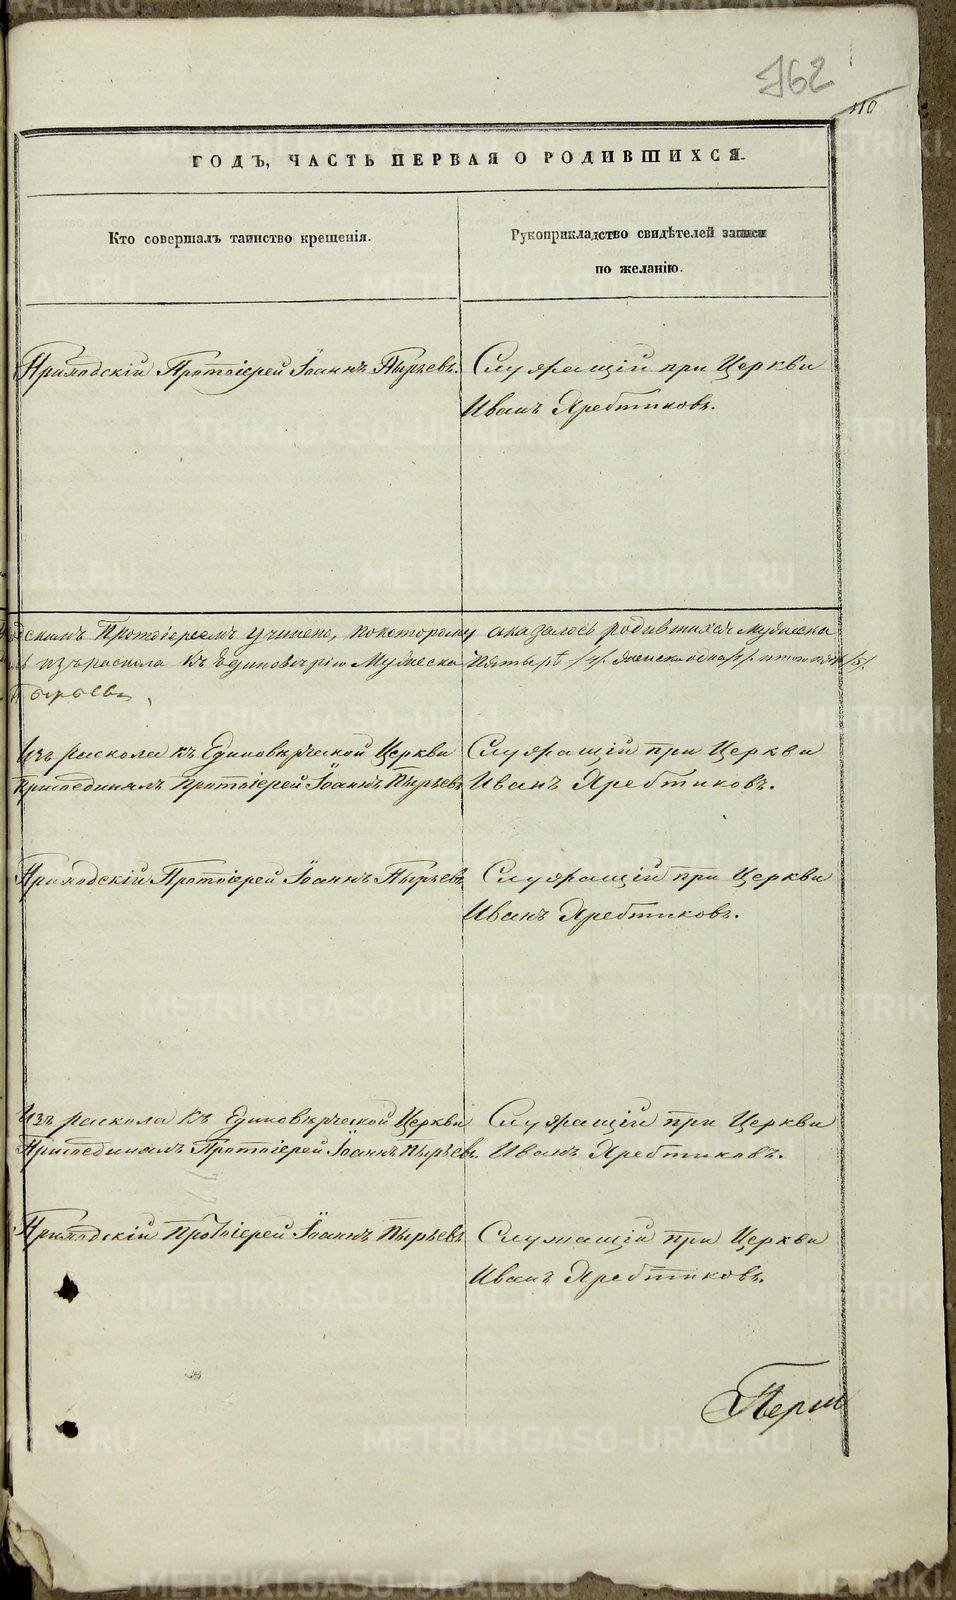 762
110
ГОДЪ, ЧАСТЬ ПЕРВАЯ О РОДИВШИХСЯ.
Кто совершалъ таинство крещенія.
Рукоприкладство свидѣтелей записи
по желанію.
Приходскій Протоіерей Іоаннъ Пырьевъ.
Служащій при Церкви
Иванъ Хребтиковъ.
Протоіереемъ учинено, по которому оказалось родившихся мужеска
изъ раскола къ единовѣрію Мужеска
Из раскола къ Единовѣрческой Церкви
присоединялъ Протоіерей Іоаннъ Пырьевъ
Служащій при Церкви
Иванъ Хребтиковъ.
Приходскій Протоіерей Іоаннъ Пырьевъ
Служащій при Церкви
Иванъ Хребтиковъ.
Изъ раскола къ Единовѣрческой Церкви
Присоединялъ Протоіерей Іоаннъ Пырьевъ.
Служащій при Церкви
Иванъ Хребтиковъ.
Приходскій Протоіерей Іоаннъ Пырьевъ
Служащій при Церкви
Иванъ Хребтиковъ.
METRIKI.GASO-URAL.RU